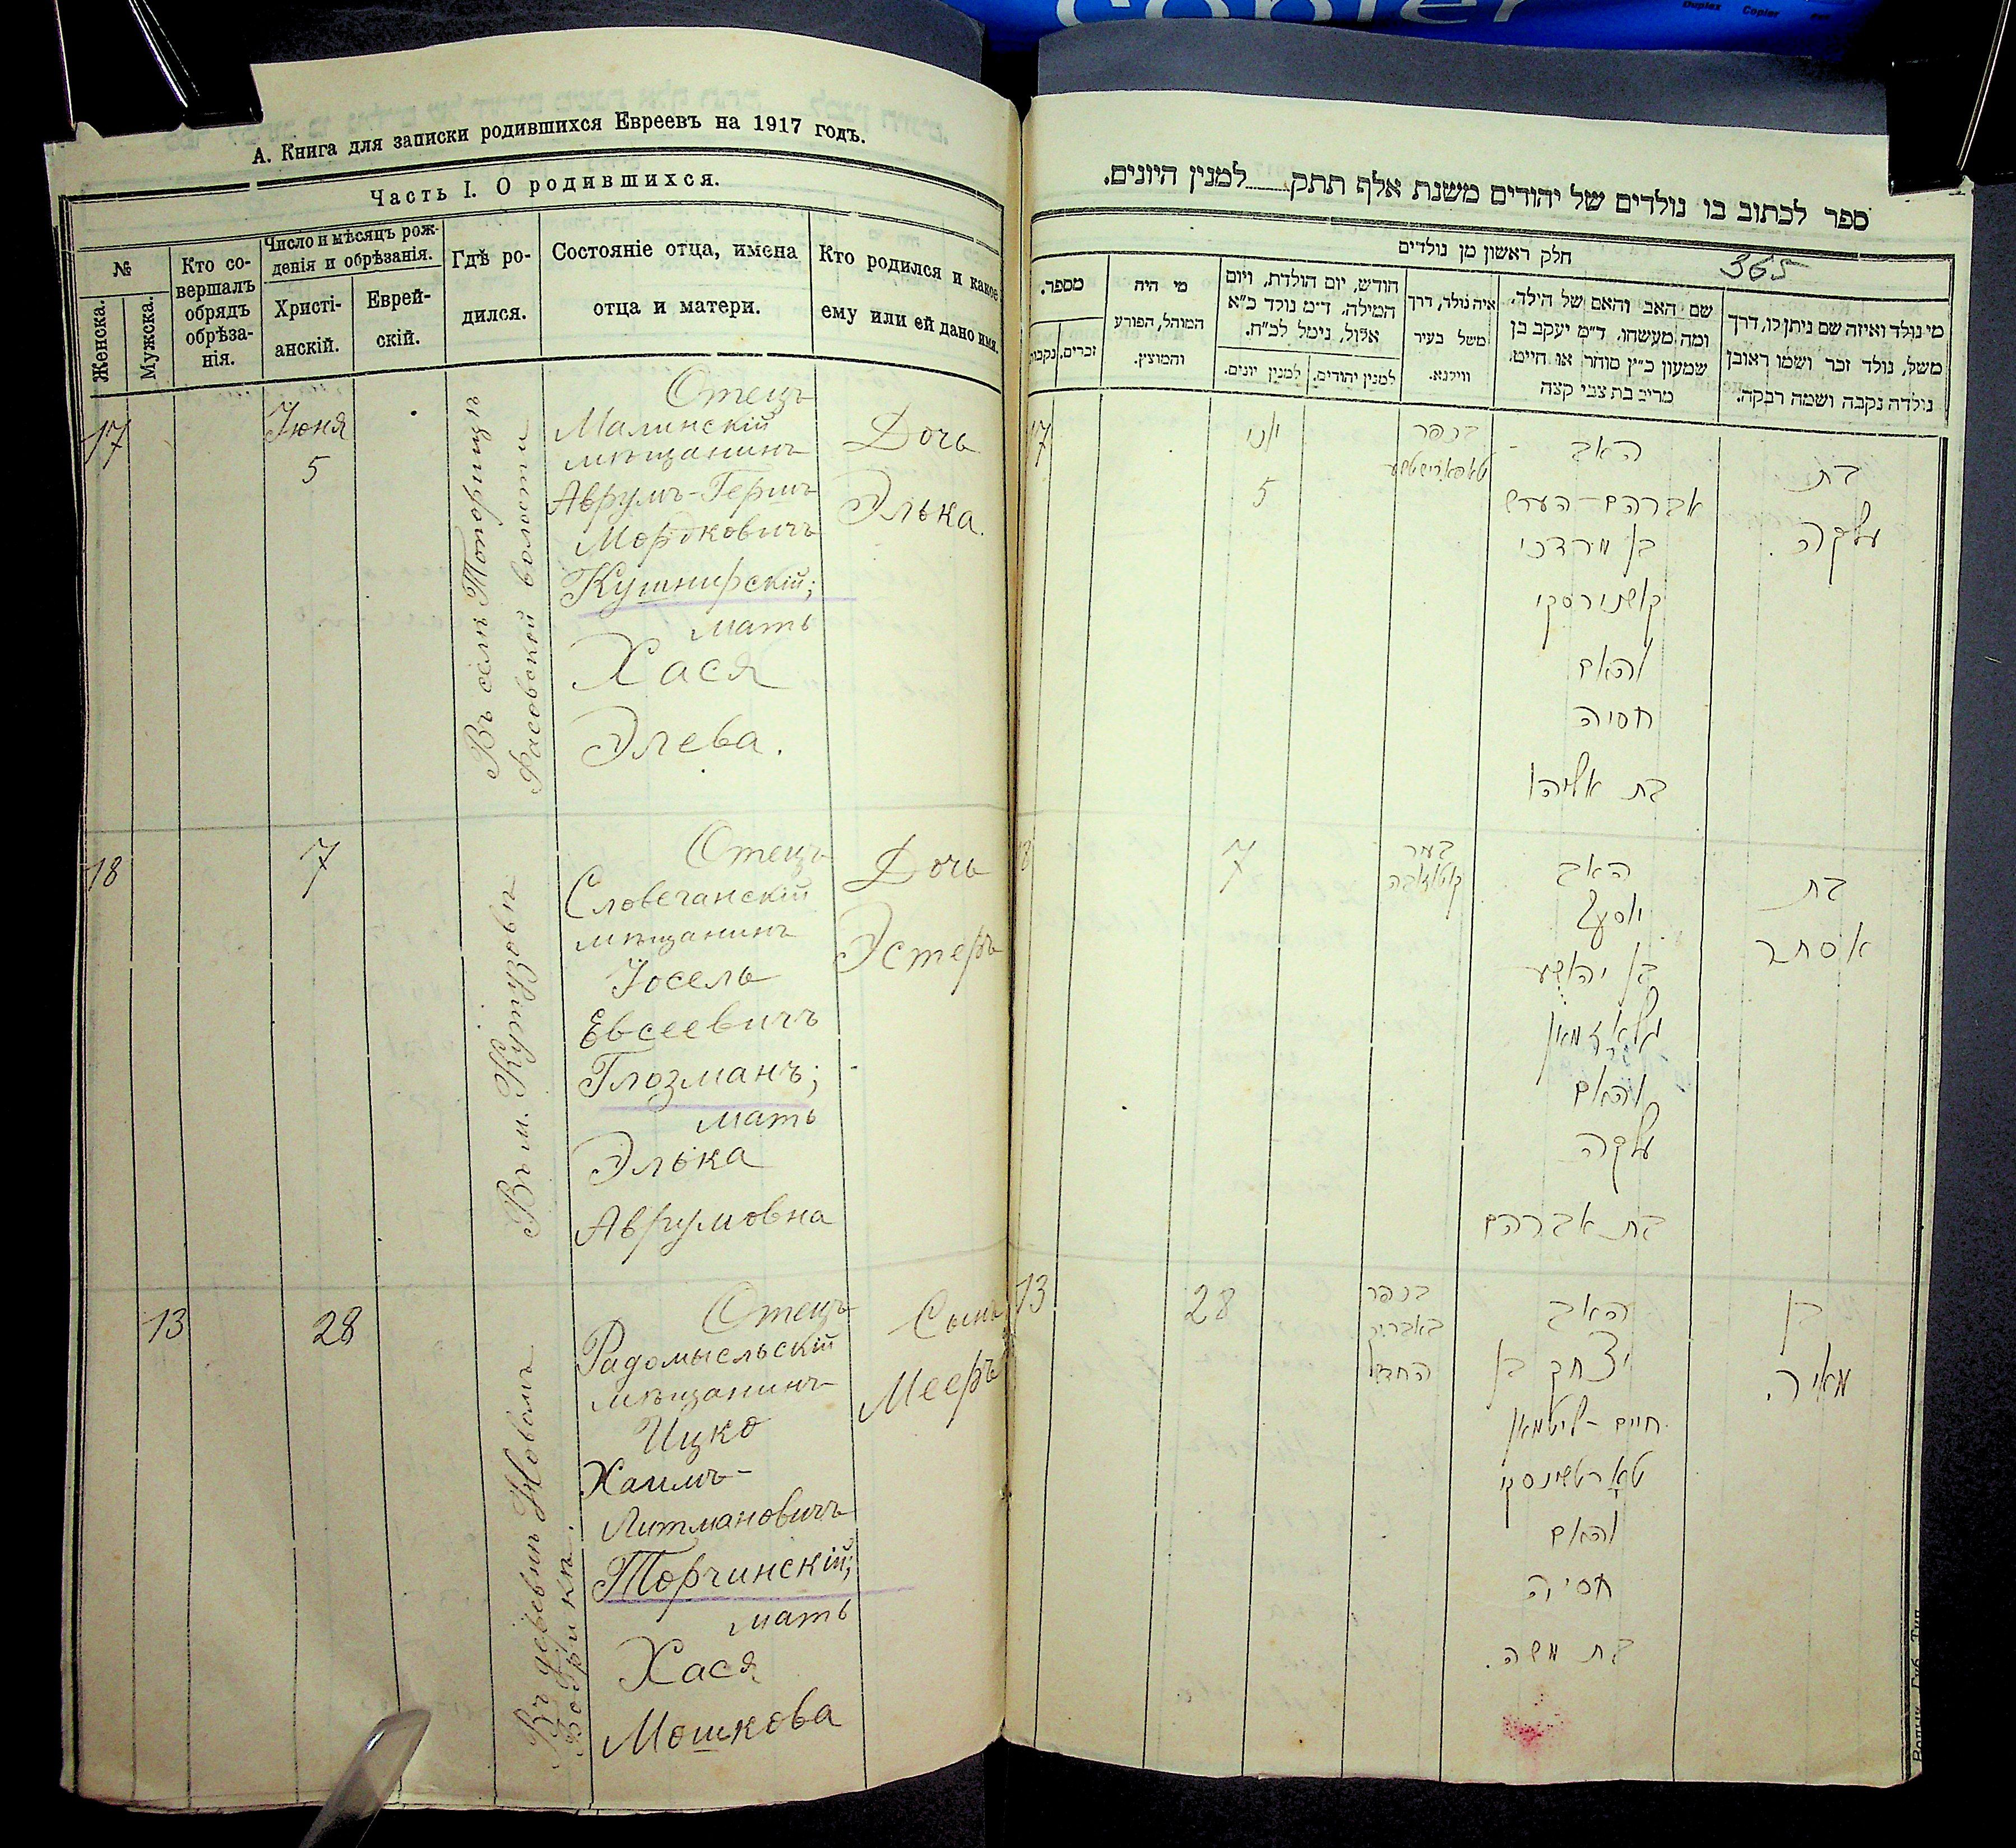 copier
Duplex Copier
А. Книга для записки родившихся Евреевъ на 1917 годъ.
Часть I. О родившихся.
№
Женска.
Мужска.
Кто со-
вершалъ
обрядъ
обрѣза-
нія.
Число и мѣсяцъ рож-
денія и обрѣзанія.
Христі-
анскій.
Еврей-
скій.
Гдѣ ро-
дился.
Состояніе отца, имена
отца и матери.
Кто родился и какое
ему или ей дано имя.
17
Іюня
5
Въ селѣ Топорищѣ
волости
Отецъ
Малинскій
мѣщанинъ
Аврумъ-Гершъ
Мордковичъ
Кушнирскій;
мать
Хася
Элева.
Дочь
Элька.
18
7
Въ м. Кутузовѣ
Отецъ
Словечанскій
мѣщанинъ
Іосель
Евсеевичъ
Глозманъ;
мать
Элька
Аврумовна
Дочь
Эстеръ
13
28
Въ деревнѣ Новомъ
Бобрикѣ.
Отецъ
Радомысльскій
мѣщанинъ
Ицко
Хаимъ-
Литмановичъ
Торчинскій;
мать
Хася
Мошкова
Сынъ
Мееръ
ספר לכתוב בו נולדים של יהודים משנת אלף תתק למנין היונים.
חלק ראשון מן נולדים
365
מספר.
נקבות.
זכרים.
מי היה
המוהל, הפורע
והמוצץ.
חודש, יום הולדת, ויום
המילה. ד״מ נולד כ״א
אלול, נימל לכ״ח.
למנין יונים.
למנין יהודים.
איה נולד, דרך
משל בעיר
ווילנא.
שם האב והאם של הילד.
ומה מעשהו. ד״מ יעקב בן
שמעון כ״ץ סוחר או חייט.
מרים בת צבי קצה
מי נולד ואיזה שם ניתן לו, דרך
משל, נולד זכר ושמו ראובן
נולדה נקבה ושמה רבקה.
17
יוני
5
בכפר
טאפארישטשע
האב
אברהם-הערש
בן מרדכי
קושנירסקי
והאם
חסיה
בת אליהו
בת
עלקה.
18
7
בעיר
קוטוזובה
האב
יוסף
בן יהושע
גלאזמאן
והאם
עלקה
בת אברהם
בת
אסתר
13
28
בכפר
באבריק
החדש
האב
יצחק בן
חיים-ליטמאן
טארטשינסקי
והאם
חסיה
בת משה.
בן
מאיר.